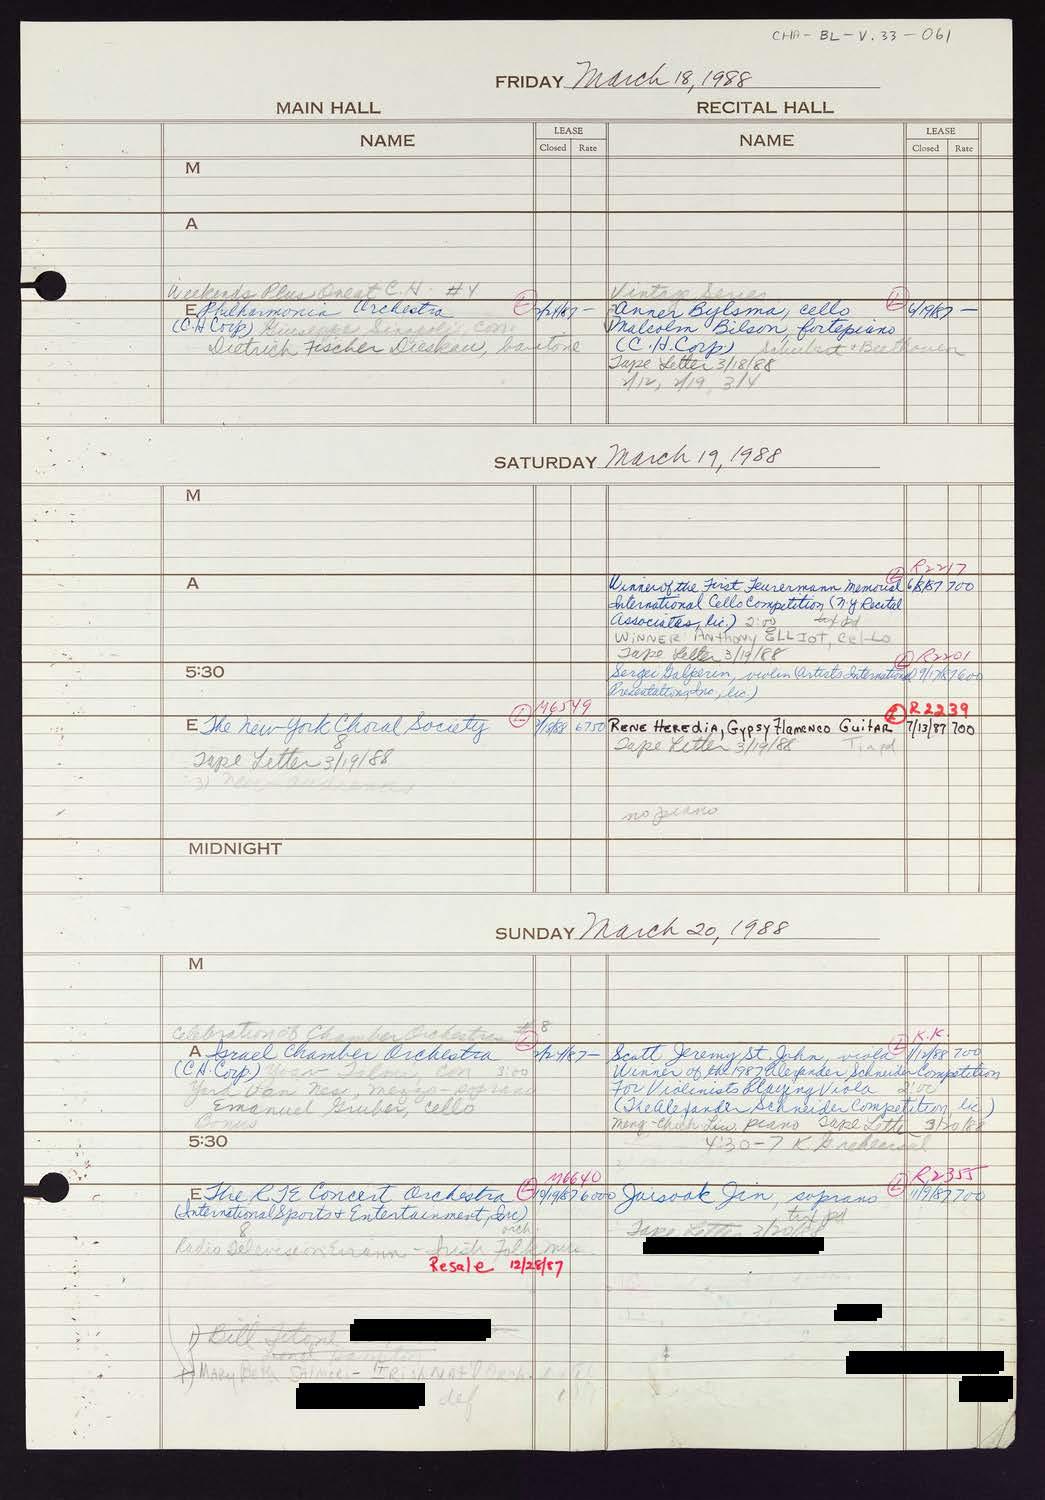 CHA-BL-V.33-061
FRIDAY March 18, 1988
MAIN HALL
RECITAL HALL
NAME
LEASE
Closed Rate
NAME
LEASE
Closed Rate
M
A
Weekends Plus Great C.H. #4
E Philharmonia Orchestra
(C.H. Corp) Giuseppe Sinopoli, con
Dietrich Fischer Dieskau, baritone
L
Vintage Series
Anner Bylsma, cello L 6/19/87 —
Malcolm Bilson, fortepiano
(C.H. Corp) Schubert + Beethoven
Tape Letter 3/18/88
2/12, 2/19, 3/4
SATURDAY March 19, 1988
M
A
L R2217
Winner of the First Feuermann Memorial 6/8/87 700
International Cello Competition (N.Y. Recital
Associates, lic.) 2:00
WINNER: Anthony ELLIOT, Cello
Tape Letter 3/19/88
5:30
L R2201
Sergei Galperin, violin (Artists International 9/17/87 600
Presentations Inc, lic.)
E The New York Choral Society L M6549
6750
8
Tape Letter 3/19/88
L R2239
RENE HEREDIA, Gypsy Flamenco Guitar 7/13/87 700
Tape Letter 3/19/88
no piano
MIDNIGHT
SUNDAY March 20, 1988
M
Celebration of Chamber Orchestras #8
A Israel Chamber Orchestra L
(C.H. Corp) Yoav Talmi, con 3:00
mezzo-soprano
Emanuel Gruber, cello
L K.K.
Scott Jeremy St. John, viola 1/12/88 700
Winner of the 1987 Alexander Schneider Competition
For Violinists Playing Viola 2:00
(The Alexander Schneider Competition, lic.)
piano Tape Letter 3/20/88
5:30
4:30-7 K. Rehearsal
E The RTE Concert Orchestra L M6640
10/19/87 6000
(International Sports & Entertainment, Inc)
8
orch
Radio Television Eireann - Irish Folk music
Resale 12/28/87
L R2355
Jaisook Jin, soprano 11/9/87 700
Tape Letter 3/20/88
1) Bill
MARY Beth
def